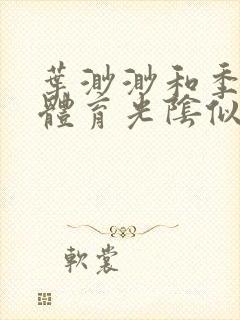 葉渺渺和季
體育光陰似
軟裳